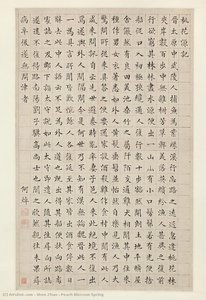 桃花源記
晉太原中武陵人捕魚為業緣溪行忘路之遠近忽逢桃花林
夾岸數百步中無雜樹芳草鮮美落英繽紛漁人甚異之復前
行欲窮其林林盡水源便得一山山有小口髣髴若有光便捨
船從口入初極狹纔通人復行數十步豁然開朗土地平曠屋
舍儼然有良田美池桑竹之屬阡陌交通雞犬相聞其中往來
種作男女衣著悉如外人黃髮垂髫並怡然自樂見漁人乃大
驚問所從來具答之便要還家設酒殺雞作食村中聞有此人
咸來問訊自云先世避秦時亂率妻子邑人來此絕境不復出
焉遂與外人間隔問今是何世乃不知有漢無論魏晉此人一
一為具言所聞皆歎惋餘人各復延至其家皆出酒食停數日
辭去此中人語云不足為外人道也既出得其船便扶向路處
處誌之及郡下詣太守說如此太守即遣人隨其往尋向所誌
遂迷不復得路南陽劉子驥高尚士也聞之欣然親往未果尋
病卒後遂無問津者
何焯
Peach Blossom Spring